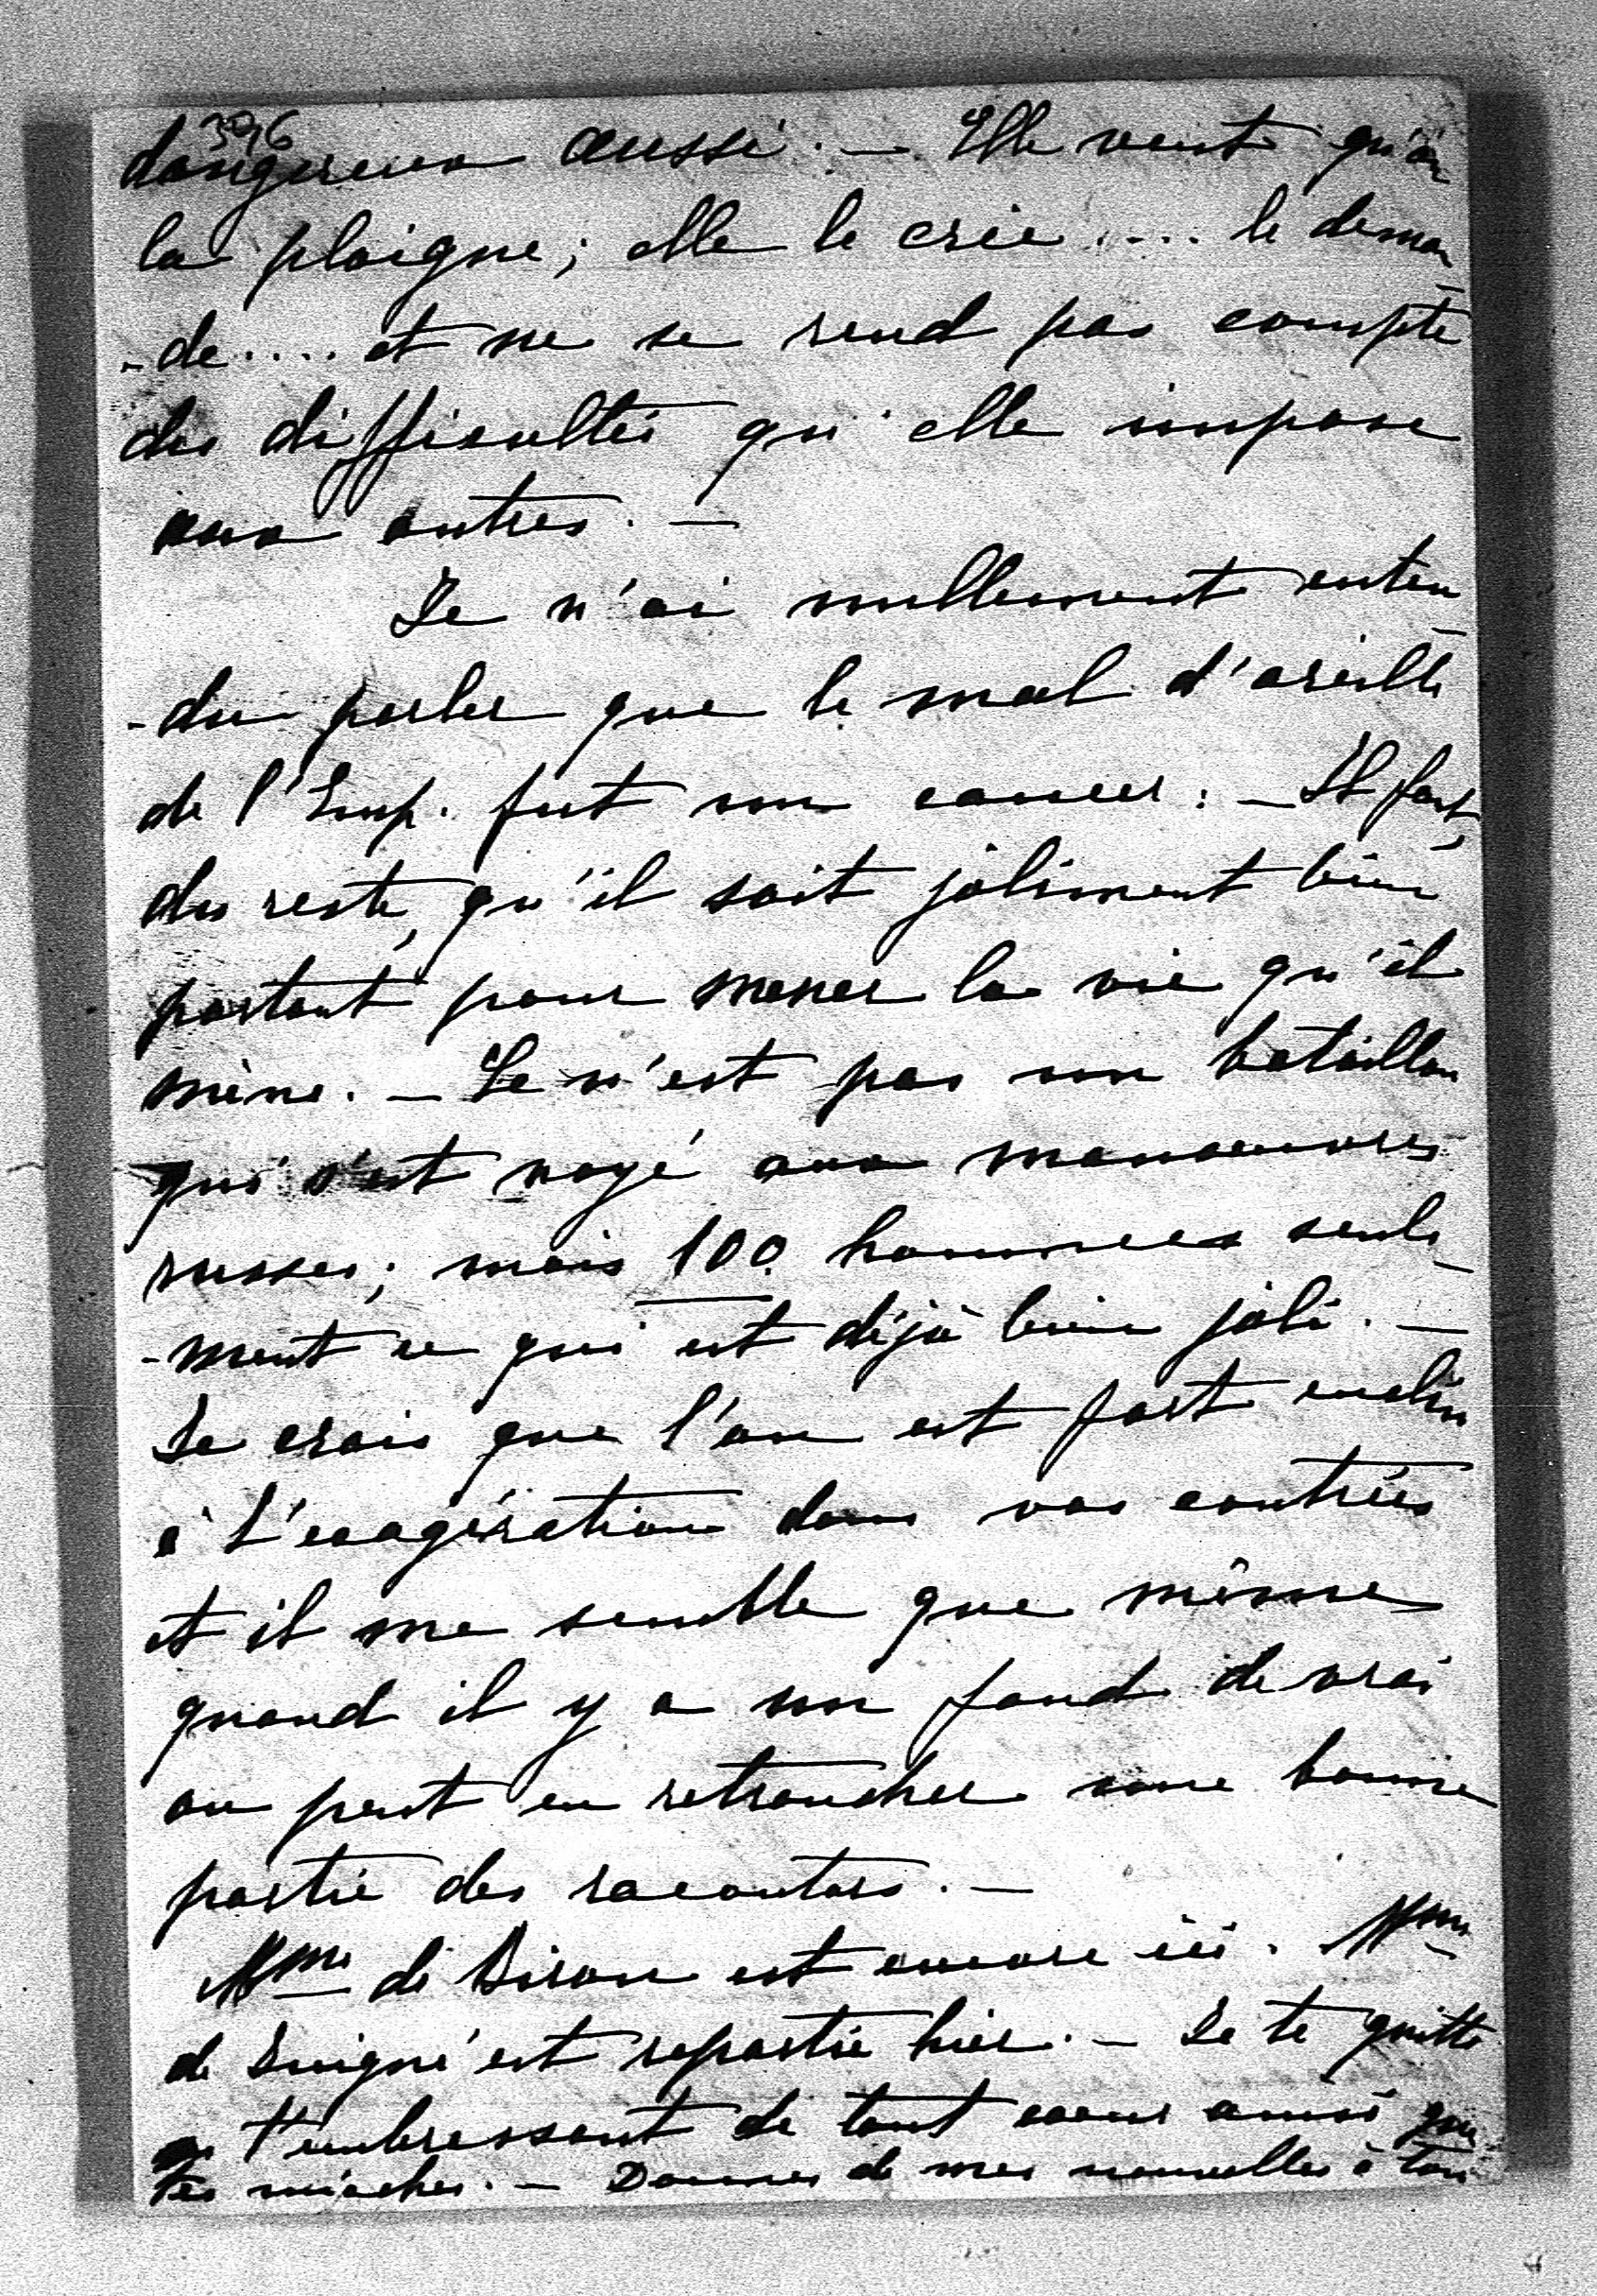 396
dangereux aussi. — Elle veut qu'on
la plaigne; elle le crie .... le deman-
-de .... et ne se rend pas compte
des difficultés qu'elle impose
aux autres. —
Je n'ai nullement enten-
-du parler que le mal d'oreille
de l'Emp. fut un cancer. — Il faut,
du reste, qu'il soit joliment bien
portant pour mener la vie qu'il
mène. — Ce n'est pas un bataillon
qui s'est noyé aux manoeuvres
russes; mais 100 hommes seule-
-ment ce qui est déjà bien joli. —
Je crois que l'on est fort enclin
à l'exagération dans vos contrées
et il me semble que même
quand il y a un fond de vrai
on peut en retrancher une bonne
partie des racontars. —
Mme de Biron est encore ici. Mme
de est repartie hier. — Je te quitte
en t'embrassant de tout coeur ainsi que
tes mioches. — Donnes de mes nouvelles à ton